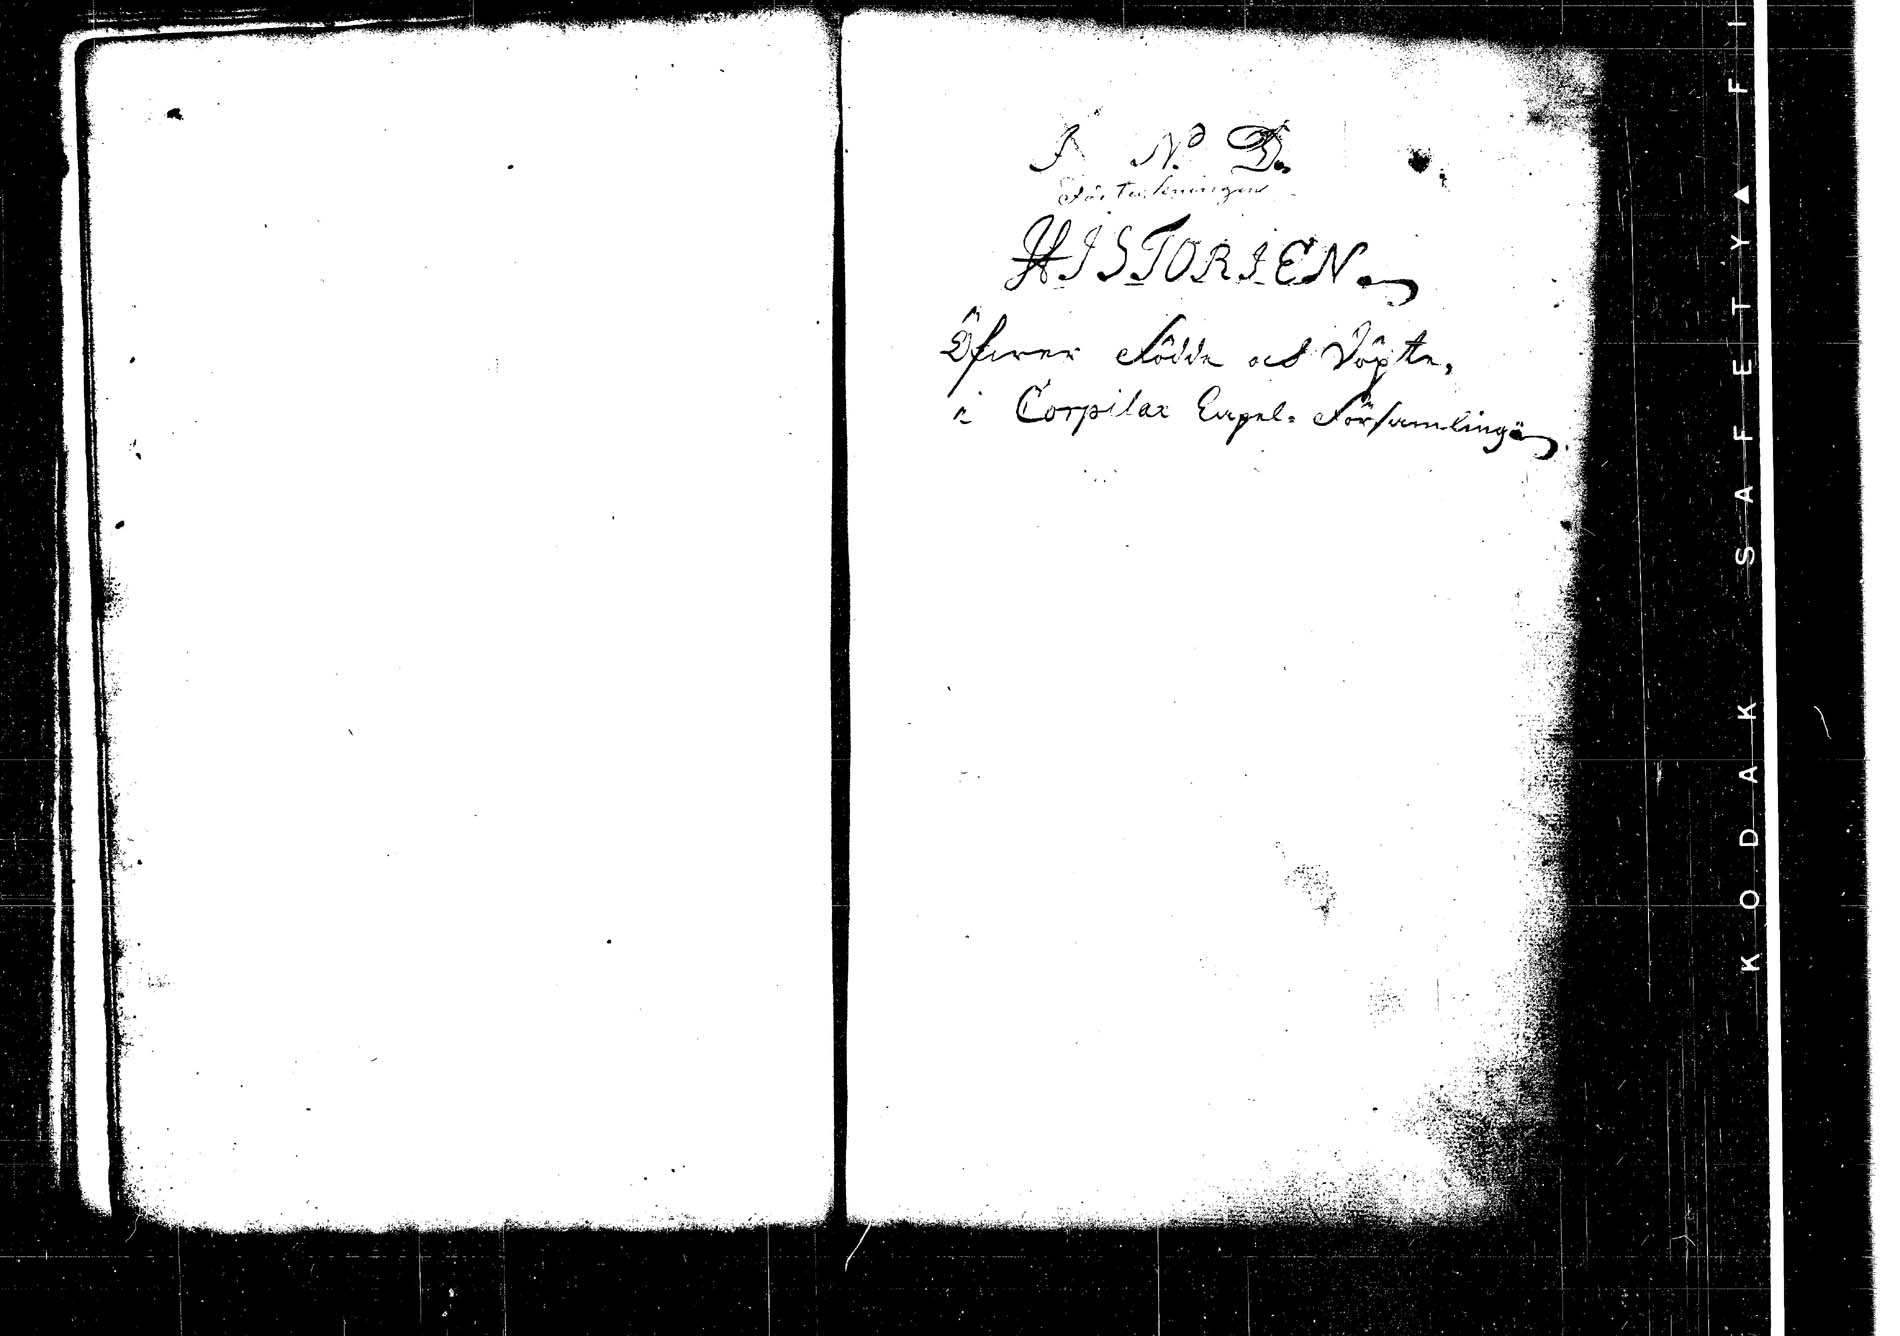 I N D.
Förteckningen
HISTORIEN.
Öfwer Födde och Döpte,
i Corpilax Capel-Församling
KODAK SAFETY ▲ FI